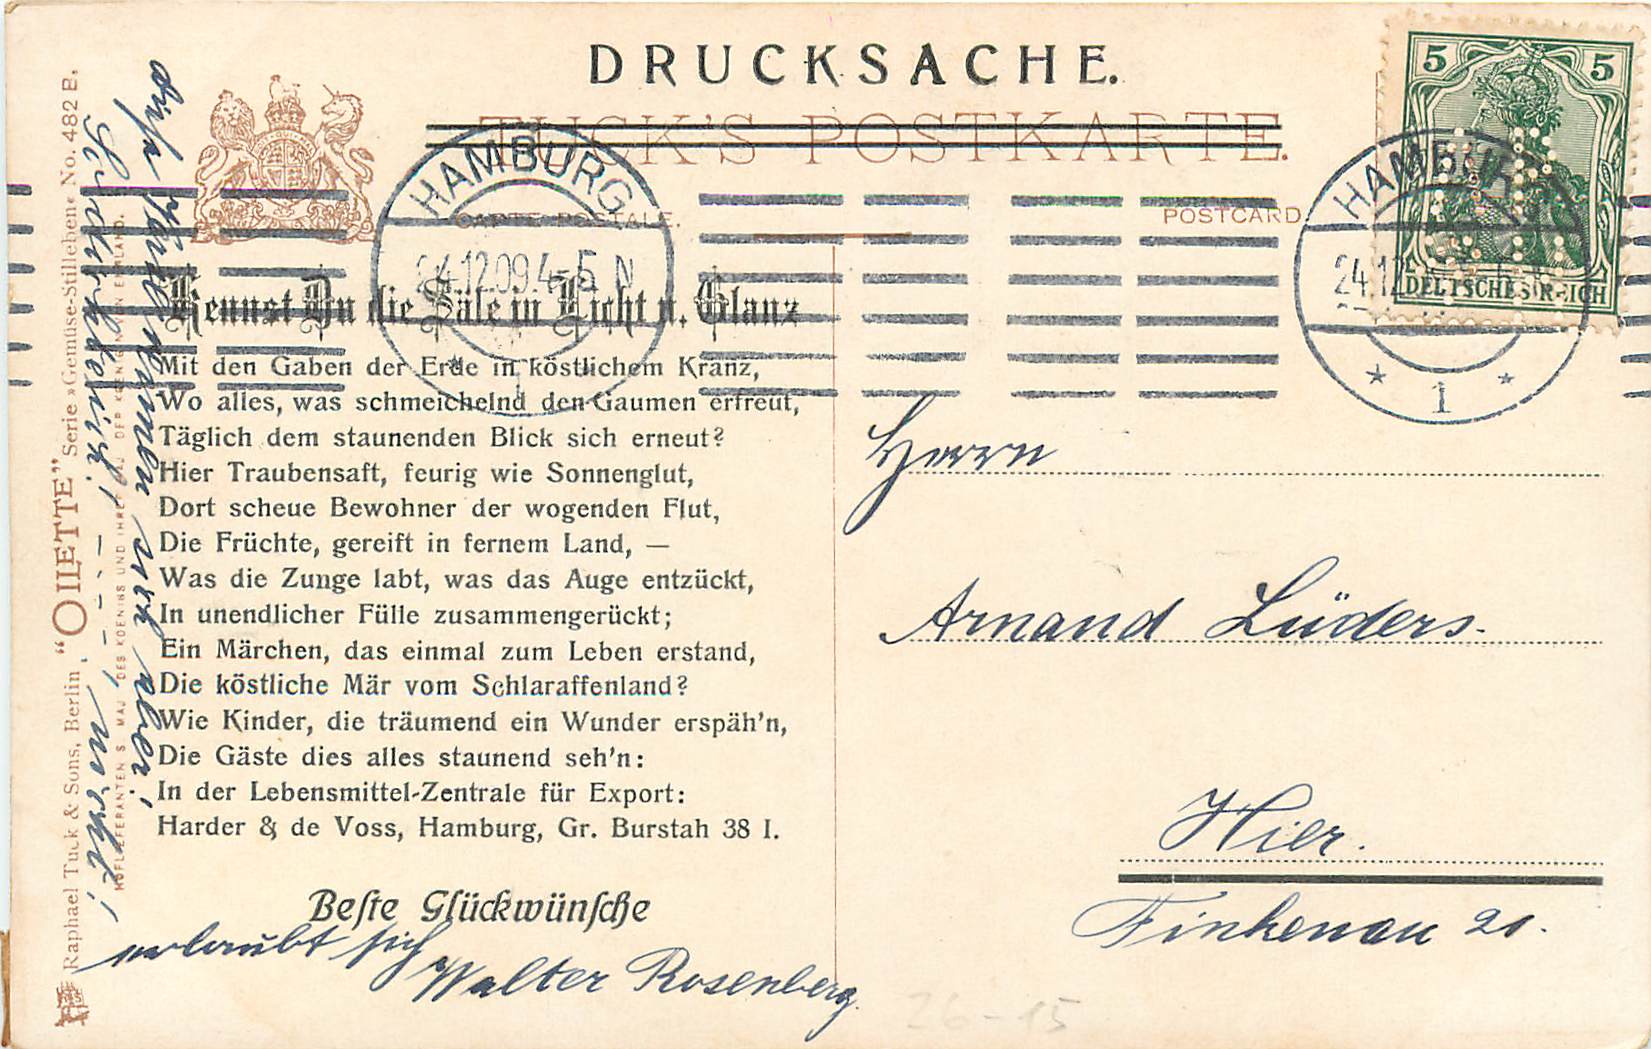 DRUCKSACHE.
TUCK'S POSTKARTE.
CARTE POSTALE.
POSTCARD
5 5
DEUTSCHES REICH
HAMBURG
24.12.09.4-5 N
* 1 *
HAMBURG
24.12
* 1 *
Kennst Du die Säle in Licht u. Glanz
Mit den Gaben der Erde in köstlichem Kranz,
Wo alles, was schmeichelnd den Gaumen erfreut,
Täglich dem staunenden Blick sich erneut?
Hier Traubensaft, feurig wie Sonnenglut,
Dort scheue Bewohner der wogenden Flut,
Die Früchte, gereift in fernem Land, —
Was die Zunge labt, was das Auge entzückt,
In unendlicher Fülle zusammengerückt;
Ein Märchen, das einmal zum Leben erstand,
Die köstliche Mär vom Schlaraffenland?
Wie Kinder, die träumend ein Wunder erspäh'n,
Die Gäste dies alles staunend seh'n:
In der Lebensmittel-Zentrale für Export:
Harder & de Voss, Hamburg, Gr. Burstah 38 I.
Beste Glückwünsche
erlaubt sich
Walter Rosenberg.
Herrn
Arnand Lüders.
Hier.
Finkenau 20.
26-15
Raphael Tuck & Sons, Berlin, "OILETTE" Serie »Gemüse-Stilleben« No. 482 B.
HOFLIEFERANTEN S. MAJ. DES KOENIGS UND IHRER MAJ. DER KOENIGIN VON ENGLAND.
diese
nicht!